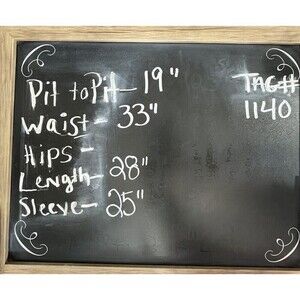 Pit to Pit - 19"
Waist - 33"
Hips -
Length - 28"
Sleeve - 25"
TAG#
1140